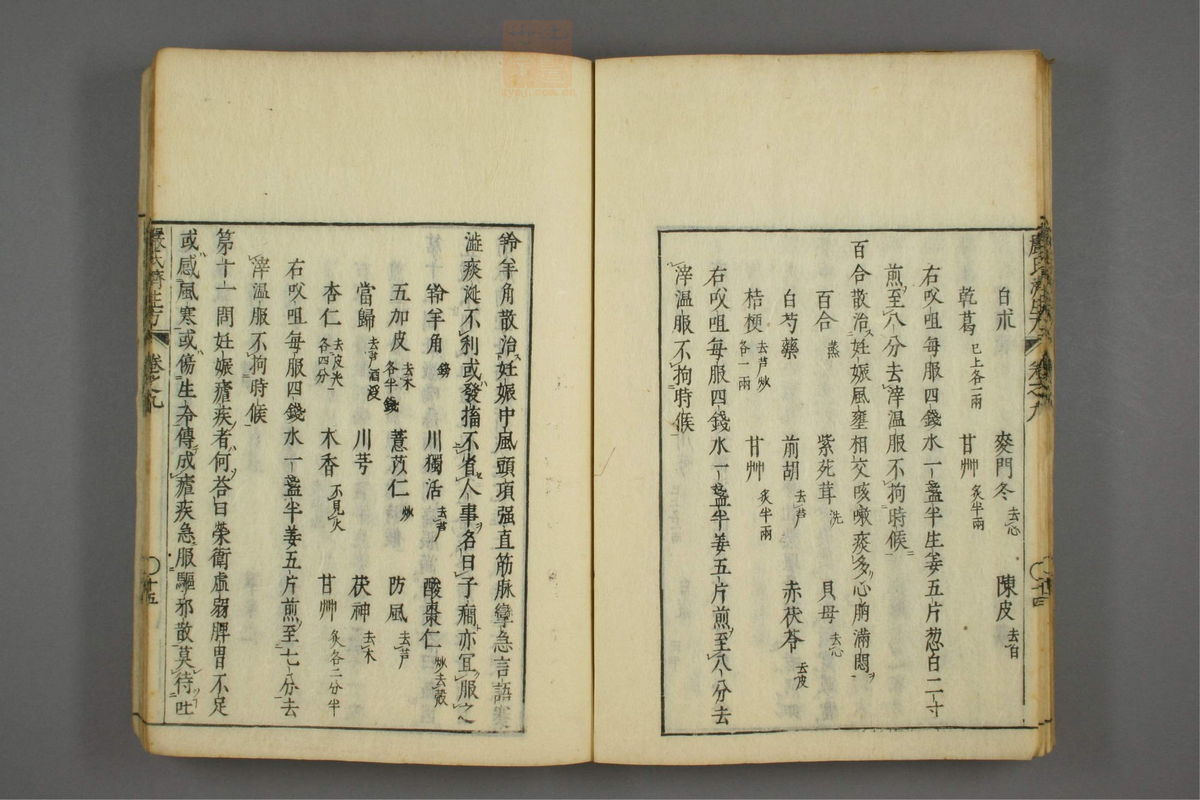 白朮 麥門冬去心 陳皮去白
乾葛已上各一兩 甘艸炙半兩
右㕮咀每服四錢水一盞半生姜五片葱白二寸
煎至八分去滓温服不拘時候
百合散治妊娠風壅相交咳嗽痰多心胷滿悶
百合蒸 紫苑茸洗 貝母去心
白芍藥 前胡去芦 赤茯苓去皮
桔梗去芦炒各一兩 甘艸炙半兩
右㕮咀每服四錢水一盞半姜五片煎至八分去
滓温服不拘時候
嚴氏濟生方 卷之九 廿四
羚羊角散治妊娠中風頭項强直筋脉攣急言語蹇
澁痰涎不利或發搐不省人事名曰子癇亦宜服之
羚羊角鎊 川獨活去芦 酸棗仁炒去殻
五加皮去木各半錢 薏苡仁炒 防風去芦
當歸去芦酒浸 川芎 茯神去木
杏仁去皮尖各四分 木香不見火 甘艸炙各二分半
右㕮咀每服四錢水一盞半姜五片煎至七分去
滓温服不拘時候
第十一問妊娠瘧疾者何荅曰榮衛虚弱脾胃不足
或感風寒或傷生冷傳成瘧疾急服驅邪散莫待吐
嚴氏濟生方 卷之九 廿五